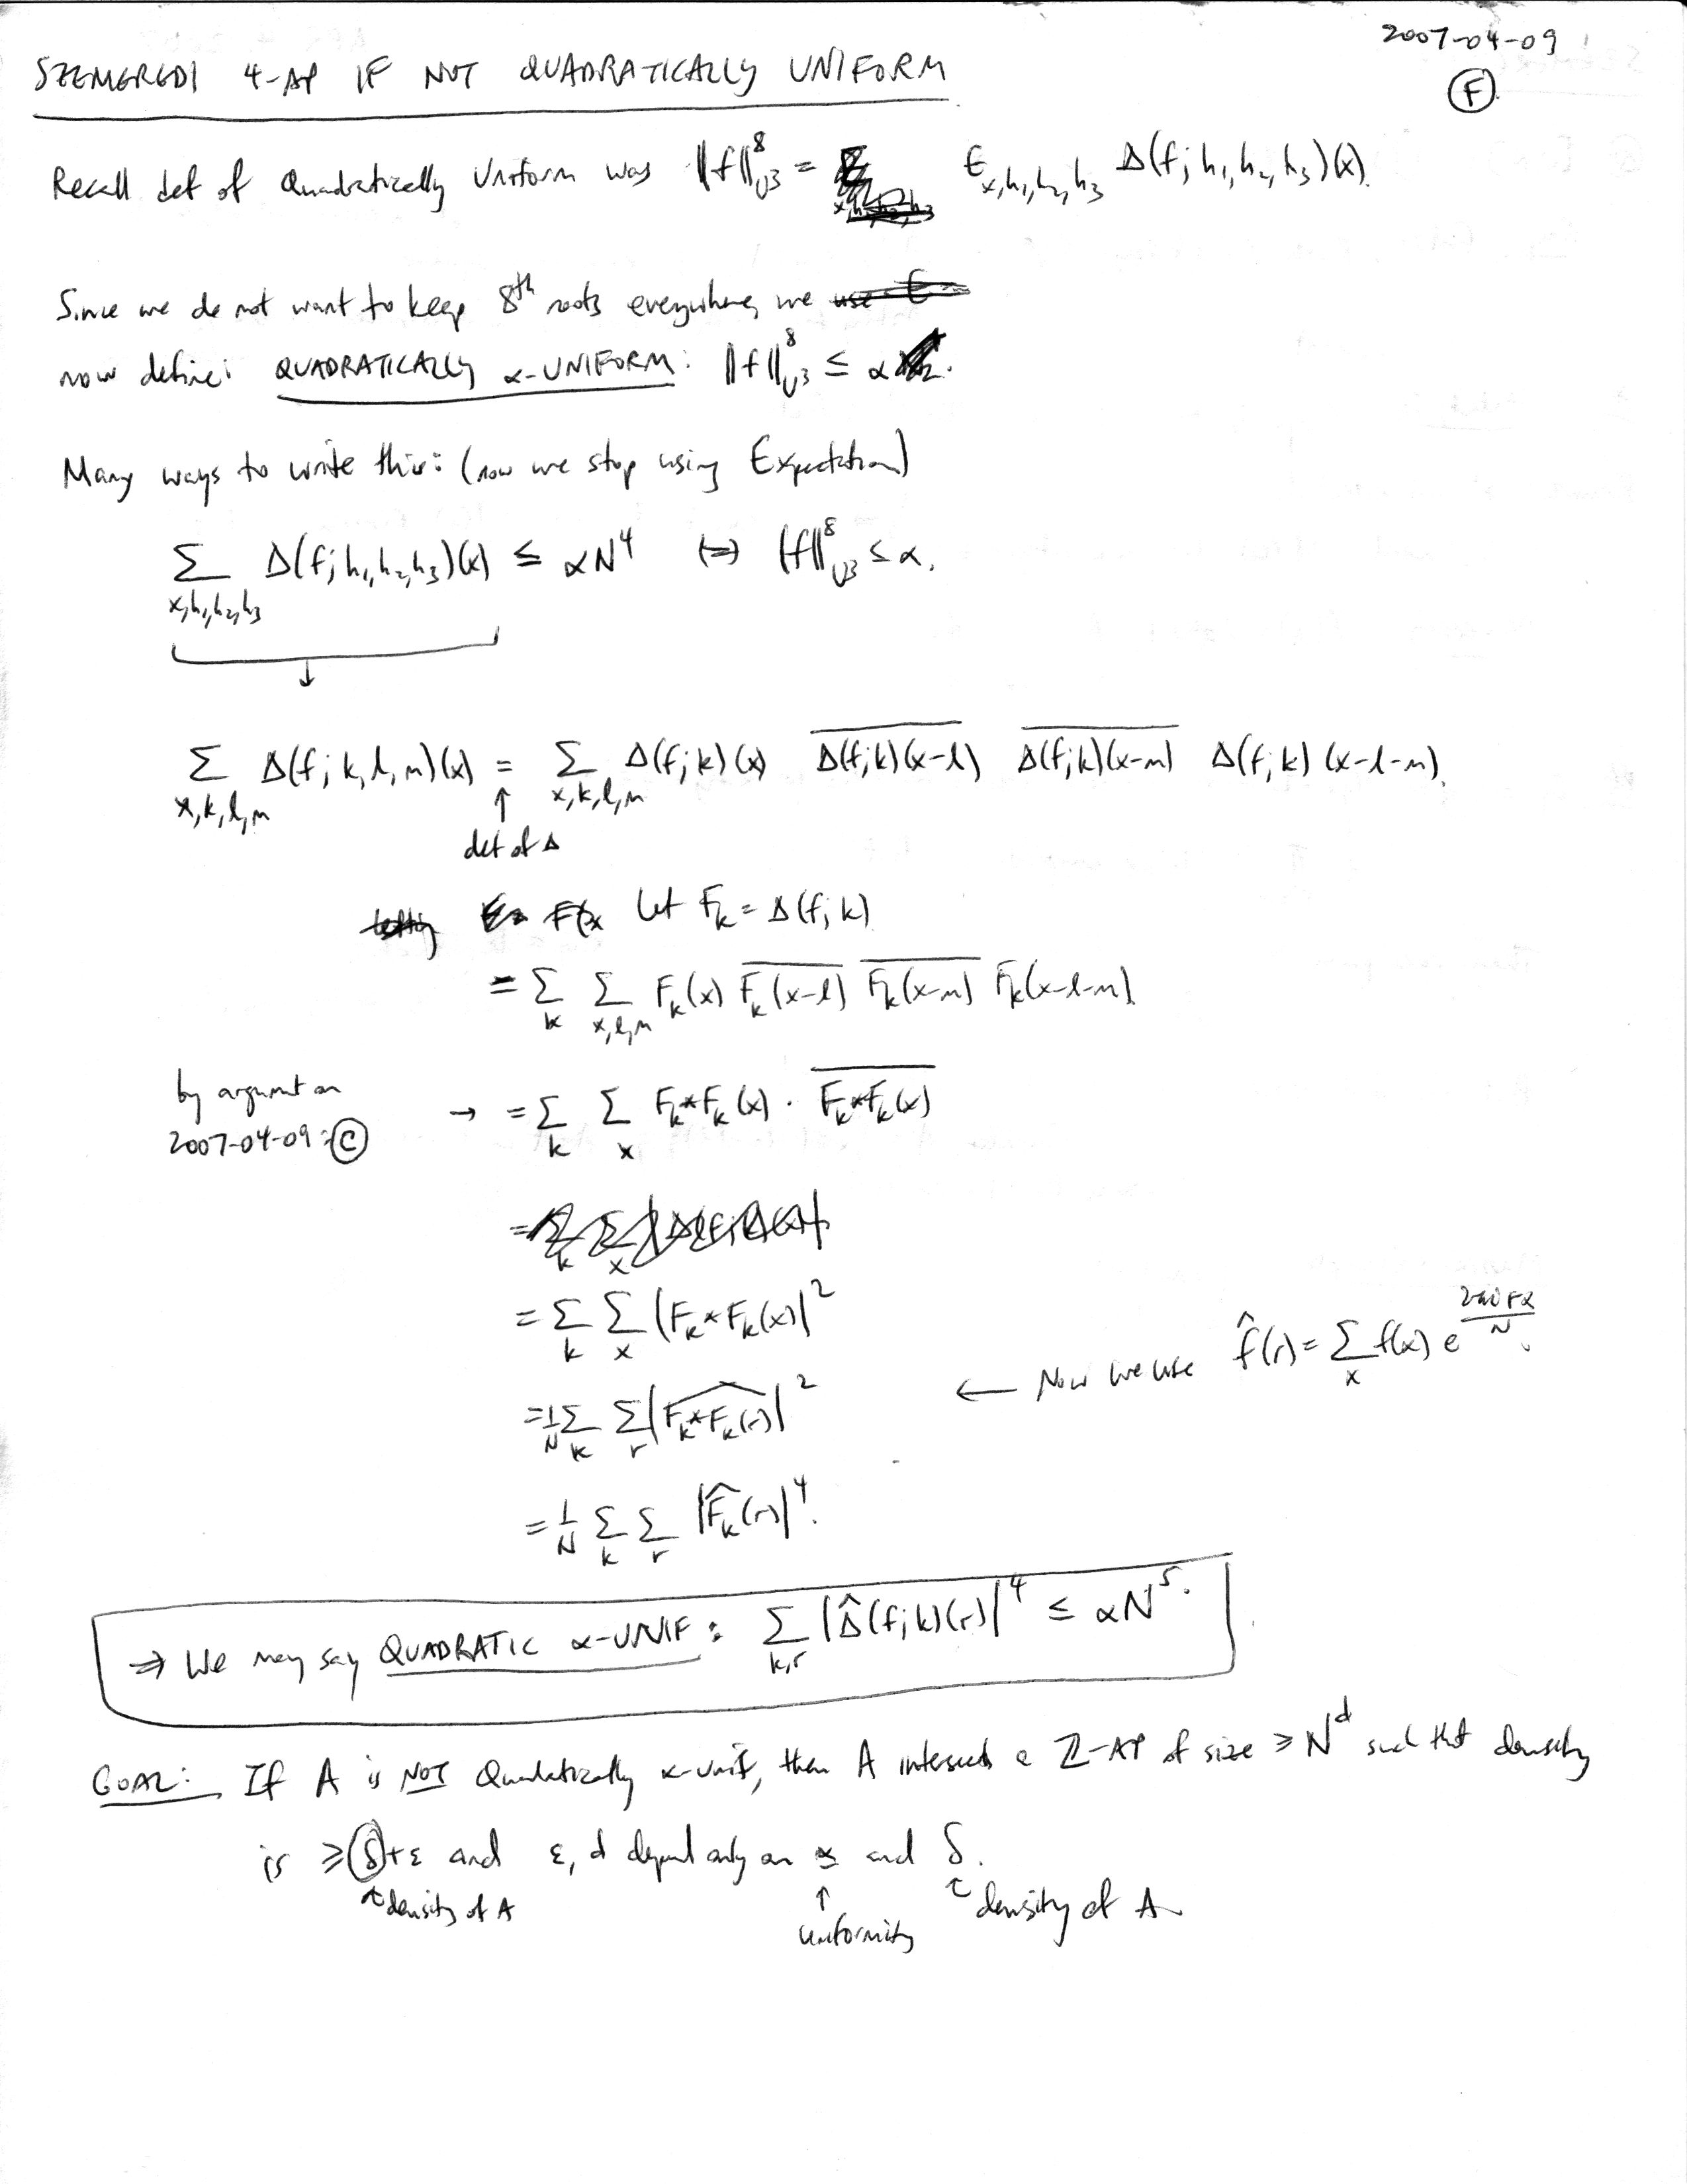 2007-04-09
SZEMEREDI 4-AP IF NOT QUADRATICALLY UNIFORM
Ⓕ
Recall def of Quadratically Uniform was ‖f‖⁸_{U³} = E_{x,h₁,h₂,h₃} Δ(f; h₁,h₂,h₃)(x).
Since we do not want to keep 8th roots everywhere, we
now define: QUADRATICALLY α-UNIFORM: ‖f‖⁸_{U³} ≤ α.
Many ways to write this: (now we stop using Expectation)
∑_{x,h₁,h₂,h₃} Δ(f; h₁,h₂,h₃)(x) ≤ αN⁴ ⟺ ‖f‖⁸_{U³} ≤ α.
↓
∑_{x,k,l,m} Δ(f; k,l,m)(x) = ∑_{x,k,l,m} Δ(f;k)(x) \overline{Δ(f;k)(x-l)} \overline{Δ(f;k)(x-m)} Δ(f;k)(x-l-m).
↑
def of Δ
Let F_k = Δ(f; k)
= ∑_k ∑_{x,l,m} F_k(x) \overline{F_k(x-l)} \overline{F_k(x-m)} F_k(x-l-m)
by argument on
2007-04-09:Ⓒ → = ∑_k ∑_x F_k*F_k(x) · \overline{F_k*F_k(x)}
= ∑_k ∑_x |F_k*F_k(x)|²
= 1/N ∑_k ∑_r |\widehat{F_k*F_k}(r)|² ← Now we use \hat{f}(r) = ∑_x f(x) e^{2πirx/N}.
= 1/N ∑_k ∑_r |\hat{F_k}(r)|⁴.
⇒ We may say QUADRATIC α-UNIF: ∑_{k,r} |\hat{Δ}(f;k)(r)|⁴ ≤ αN⁵.
GOAL: If A is NOT Quadratically α-unif, then A intersects a ℤ-AP of size ≥ N^d such that density
is ≥ δ+ε and ε, d depend only on α and δ.
↑ density of A
↑ uniformity
↑ density of A